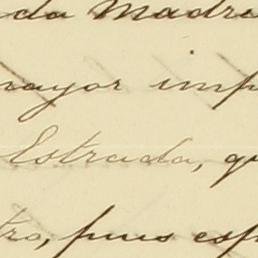 da Madri
mayor imp
Estrada, qu
tro, pues esp